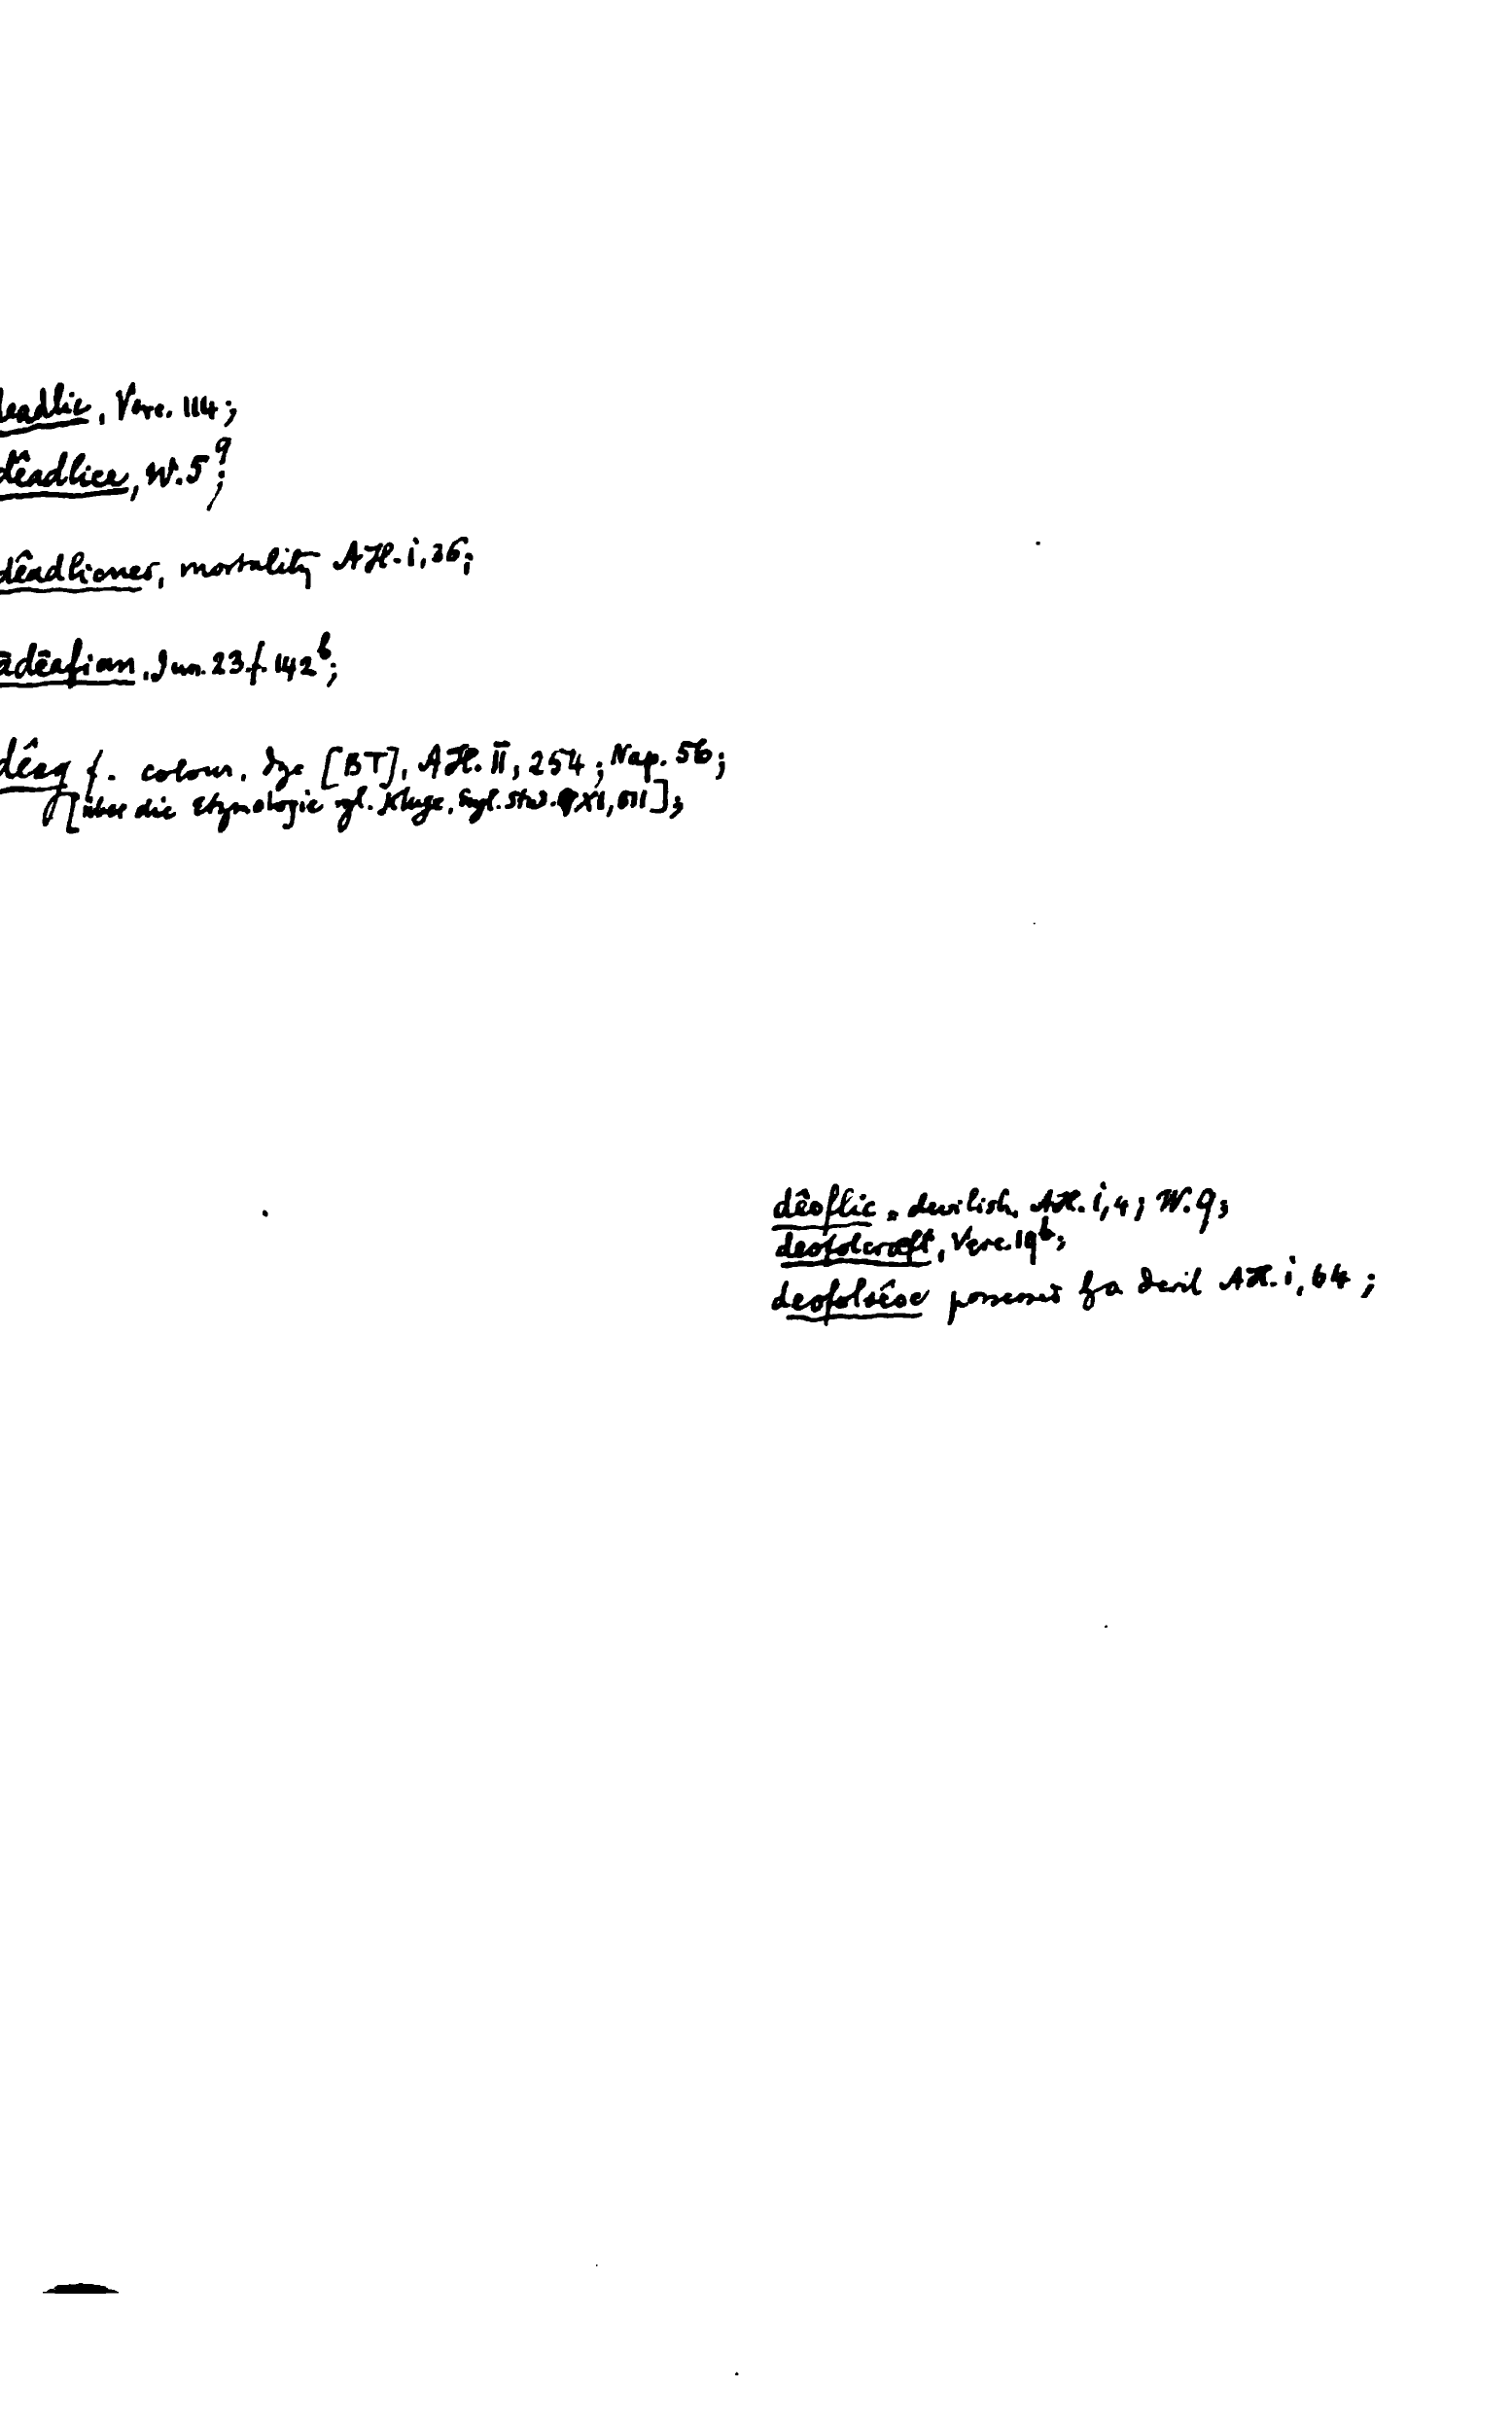 deadlic, Verc. 114;
dêadlice, W. 5⁹;
dêadlicnes, mortality AH. i, 36;
ādēafian, Jun. 23 f. 142ᵇ;
dêag f. colour, dye [BT], AH. II, 254; Nap. 56;
[über die Etymologie vgl. Kluge, Engl. Stud. XI, 511];
dêoflic, devilish, AH. i, 4; W. 9;
deofolcræft, Verc. 19ᵇ;
deofolsêoc possessed by a devil AH. i, 64;